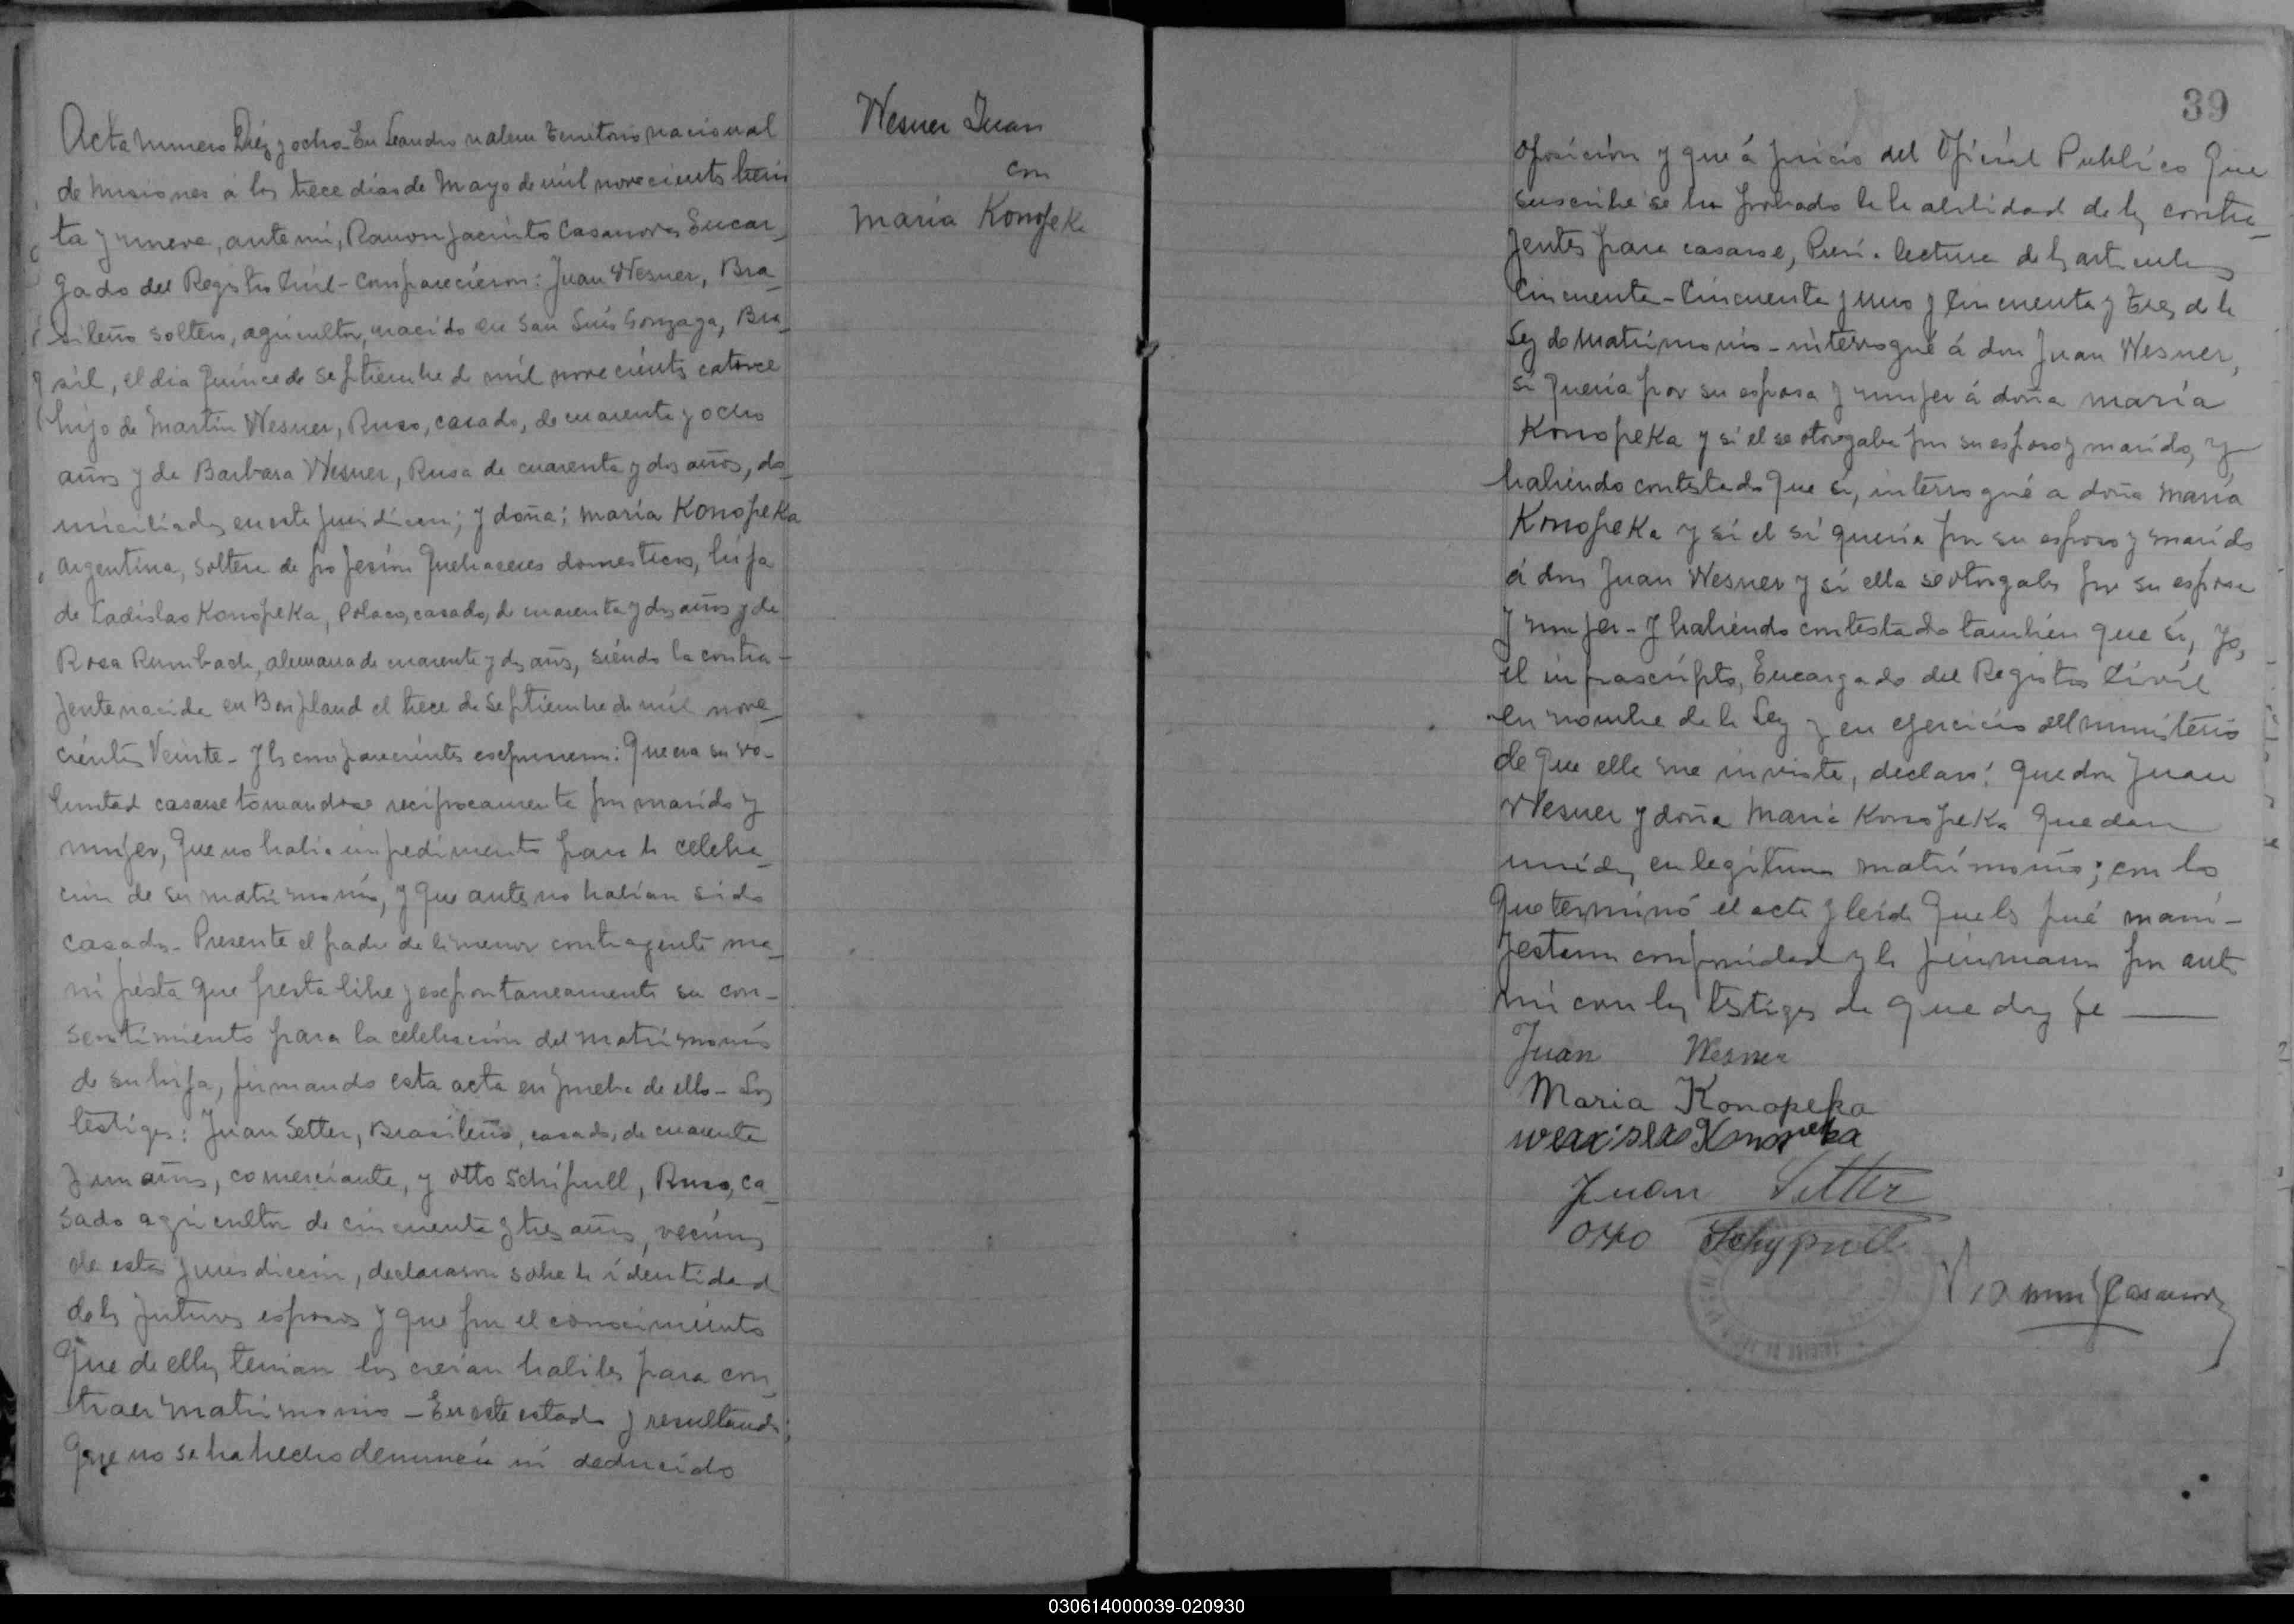 Acta numero Diéz y ocho - En Leandro n alem territorio nacional
de misiones á los trece dias de Mayo de mil novecientos trein
ta y nueve, ante mi, Ramon Jacinto Casanova Encar-
gado del Registro Civil - Comparecieron: Juan Wesner, Bra-
sileño soltero, agricultor, nacido en San Luis Gonzaga, Bra-
sil, el dia quince de Septiembre de mil novecientos catorce
hijo de Martin Wesner, Ruso, casado, de cuarenta y ocho
años y de Barbara Wesner, Rusa de cuarenta y dos años, do-
miciliados en esta jurisdiccion; y doña; maria Konopeka
argentina, soltera de profesión quehaceres domesticos, hija
de Ladislao Konopeka, Polaco, casado, de cuarenta y dos años y de
Rosa Rumbach, alemana de cuarenta y dos años, siéndo la contra-
jente nacida en Bonpland el trece de Septiembre de mil nove-
cientos Veinte - y los comparecientes expusieron: Que era su vo-
luntad casarse tomandose reciprocamente por marido y
mujer, que no habia impedimento para la celebra-
cion de su matrimonio, y que antes no habian sido
casados - Presente el padre de la menor contragente ma-
nifésta que presta libre y espontaneamente su con-
sentimiento para la celebración del matrimonio
de su hija, firmando esta acta en prueba de ello - Los
testigos: Juan Setter, Brasileño, casado, de cuarenta
y un años, comerciante, y otto Schipull, Ruso, ca-
sado agricultor de cincuenta y tres años, vecinos
de esta jurisdiccion, declararon sobre la identidad
de los futuros esposos y que por el conocimiento
que de ellos tenian los creian habiles para con-
traer matrimonio - En este estado y resultando;
que no se ha hecho denuncia ni deducido
Wesner Juan
con
maria Konopeka
39
oposición y que á juicio del Oficial Publico que
suscribe se ha probado la habilidad de los contra-
jentes para casarse, Previa lectura de los articulos
Cincuenta - Cincuenta y uno y cincuenta y tres de la
Ley de matrimonio - interrogué á don Juan Wesner,
si queria por su esposa y mujer á doña maria
Konopeka y si el se otorgaba por su esposo y marido, y
habiendo contestado que si, interrogué a doña maria
Konopeka y sí el si queria por su esposo y marido
á don Juan Wesner y si ella se otorgaba por su esposa
y mujer - y habiendo contestado tambien que sí, yo,
el infrascripto, Encargado del Registro Civil
en nombre de la Ley y en ejercicio del ministerio
de que ella me inviste, declaro: que don Juan
Wesner y doña Maria Konopeka quedan
unidos en legitimo matrimonio; con lo
que terminó el acta y leida que les fué mani-
festaron conformidad y la firmaron por ante
mi con los testigos de que doy fe
Juan Wesner
Maria Konopeka
Konopeka
Juan Setter
Otto Schypull
Ramon J Casanova
030614000039-020930